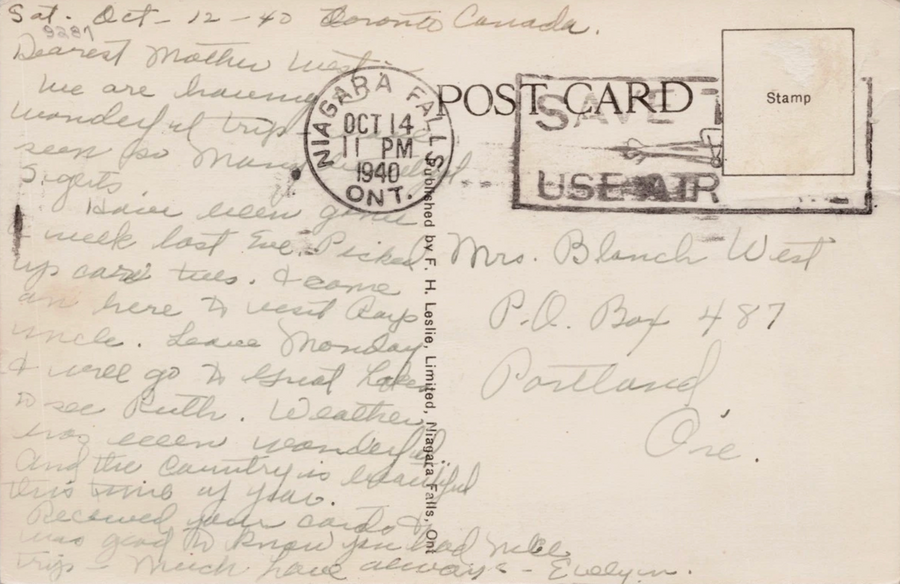 Sat. Oct - 12 - 40 Toronto Canada.
9287
Dearest Mother West
We are having
wonderful trip
seen so many beautiful
Sights.
Have been gone
a week last Eve. Picked
up car tues. & came
on here to visit Rays
uncle. Leave Monday
& will go to Great Lakes
to see Ruth. Weather
has been wonderful.
And the country is beautiful
this time of year.
Received your cards &
was good to know you had nice
trip - Much love always - Evelyn.
NIAGARA FALLS
OCT 14
11 PM
1940
ONT.
POST CARD
SAVE
USE AIR
Stamp
Published by F. H. Leslie, Limited, Niagara Falls, Ont
Mrs. Blanch West
P.O. Box 487
Portland
Ore.